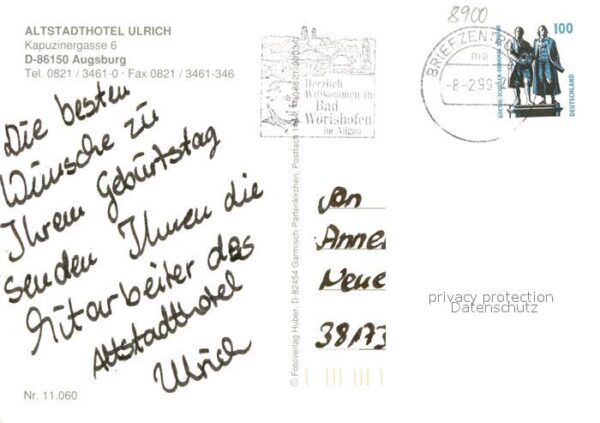 ALTSTADTHOTEL ULRICH
Kapuzinergasse 6
D-86150 Augsburg
Tel. 0821 / 3461-0 · Fax 0821 / 3461-346
Die besten
Wünsche zu
Ihrem Geburtstag
senden Ihnen die
Mitarbeiter des
Altstadthotel
Ulrich
Nr. 11.060
© Fotoverlag Huber, D 82454 Garmisch-Partenkirchen, Postfach
Herzlich
Willkommen in
Bad
Wörishofen
im Allgäu
8900
BRIEFZENTRUM
ma
-8-2.99
100
DEUTSCHLAND
An
Anne
Neue
38173
privacy protection
Datenschutz